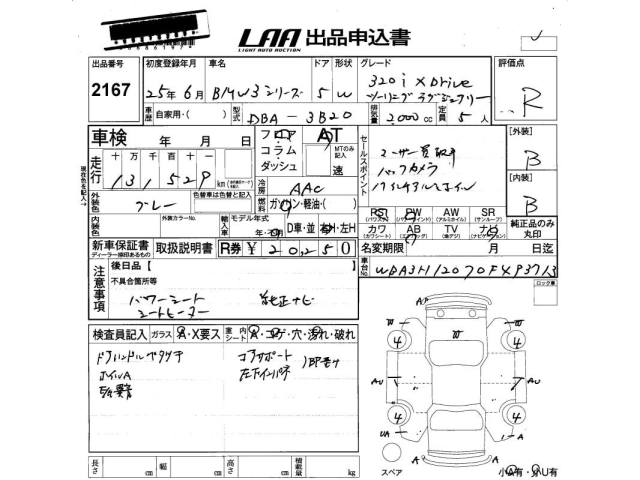 LAA 出品申込書
LIGHT AUTO AUCTION
出品番号 初度登録年月 車名 ドア 形状 グレード 評価点
2167 25年6月 BMW3シリーズ 5 W 320i xDrive R
ツーリング ラグジュアリー
車歴 自家用・( ) 型式 DBA - 3B20 排気量 2,000cc 定員 5人
車検 年 月 日 フロア AT
コラム MTのみ記入
ダッシュ 速
セールスポイント
ユーザー買取車
バックカメラ
[外装]
B
走行 十万 千 百 十
131,529 km
冷房 AAC
[内装]
B
外装色 グレー 色替車は色替と記入 燃料 ガソリン・軽油・( )
PS PW AW SR
(パワステ) (パワーウインド) (アルミホイル) (サンルーフ)
内装色 外装カラーNo. 輸入車 モデル年式
年・ D車・並 右H・左H
カワ AB TV ナビ
(カワシート) (エアーバッグ) (車アンテナ) (ナビゲーション)
純正品のみ丸印
新車保証書 取扱説明書 R券 ¥ 20,250 名変期限 月 日迄
ディーラー捺印あるもの
車台No.
注意事項
後日品[ ]
不具合箇所等
パワーシート 純正ナビ
シートヒーター
ロック車
検査員記入 ガラス A・X要ス 室内シート A・コゲ・穴・汚れ・破れ
ドアハンドルベタツキ コアサポート
ホイルA 左下インパネ
A
W W
4 4
AU AU
4 4
UA A
A A
スペア
小A有・小U有
長さ cm 幅 cm 高さ cm 積載量 kg